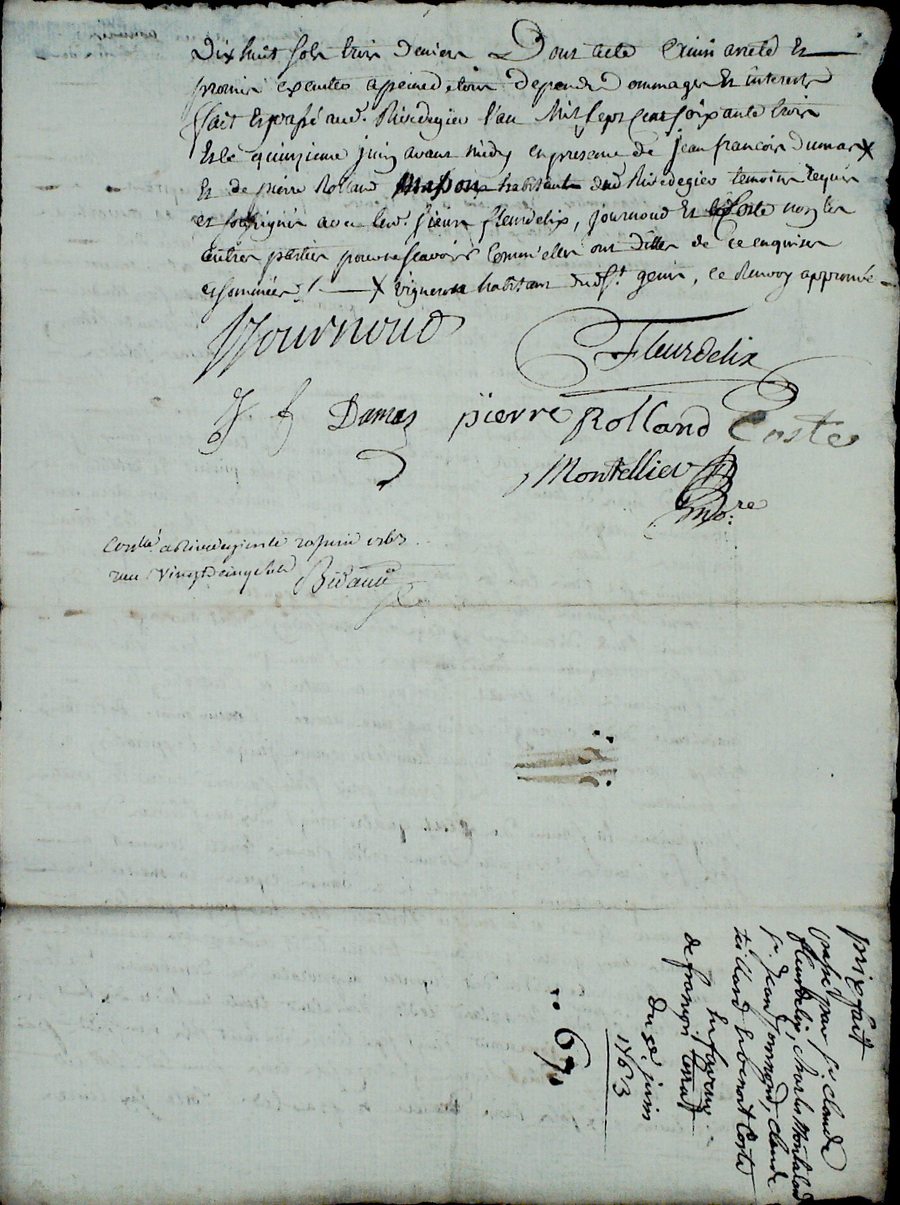 Dix huit sols trois deniers Dont acte Ainsi arreté Et
promis executer a peine de tous depens Dommages Et interests
fait Et passé aud. Rivedegier l'an Mil sept Cent soixante trois
Et le quinzieme juin avant midy en presence de jean francois Dumas X
Et de pierre Roland habitant dud Rivedegier temoins requis
et soussignés avec led. sieurs fleurdelix, journoud Et Coste non les
autres parties pour ne scavoir Comm'elles ont dittes de ce enquises
et sommées /. — X vigneron habitant dud St. genis, ce Renvoy approuvé
Journoud
Fleurdelix
J. f Dumas pierre Rolland Coste
Montellier
no.re
Conllé a Rivedegier le 20 juin 1763
reçu vingt cinq sols
prix fait
passé par sr. claude
fleurdelix, charles
sr. Jean Journoud, claude
et benoit Coste
en faveur
de françois
Du juin
1763
67